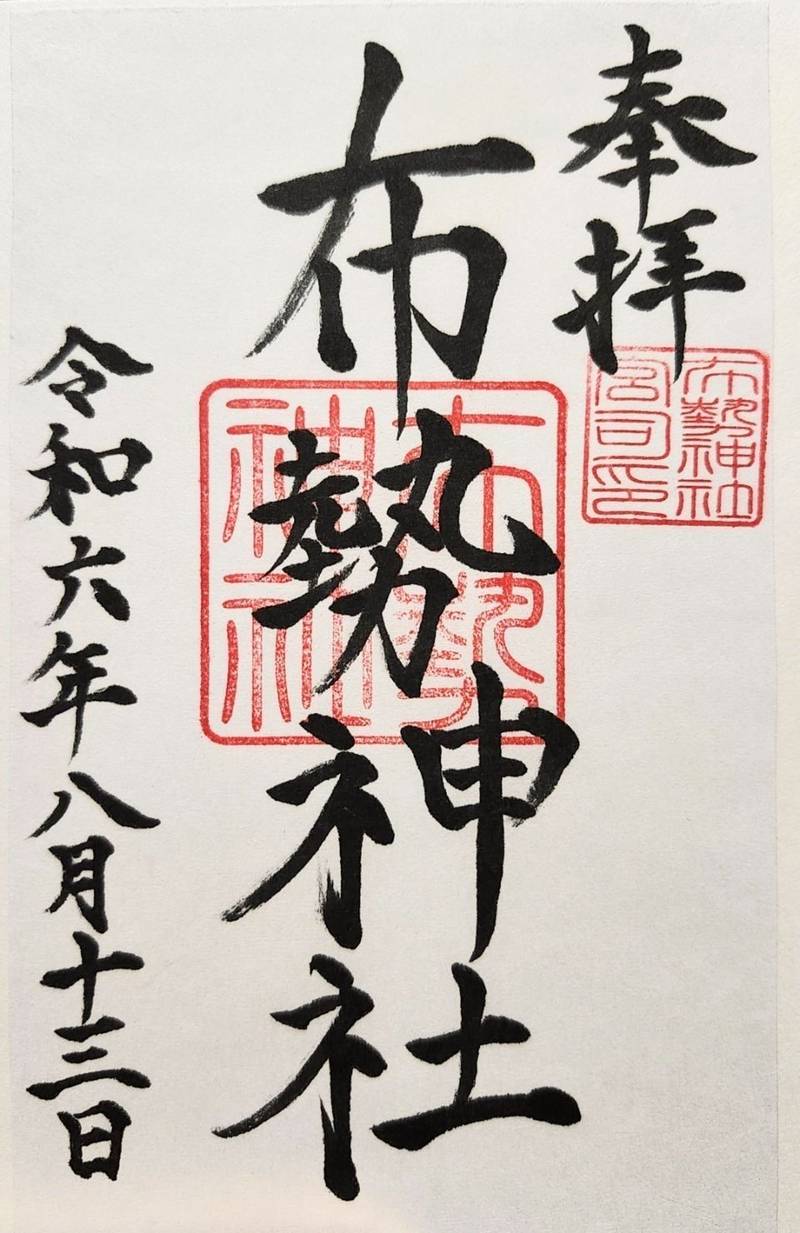 奉拝
布勢神社
宮司印
布勢神社
布勢神社
令和六年八月十三日